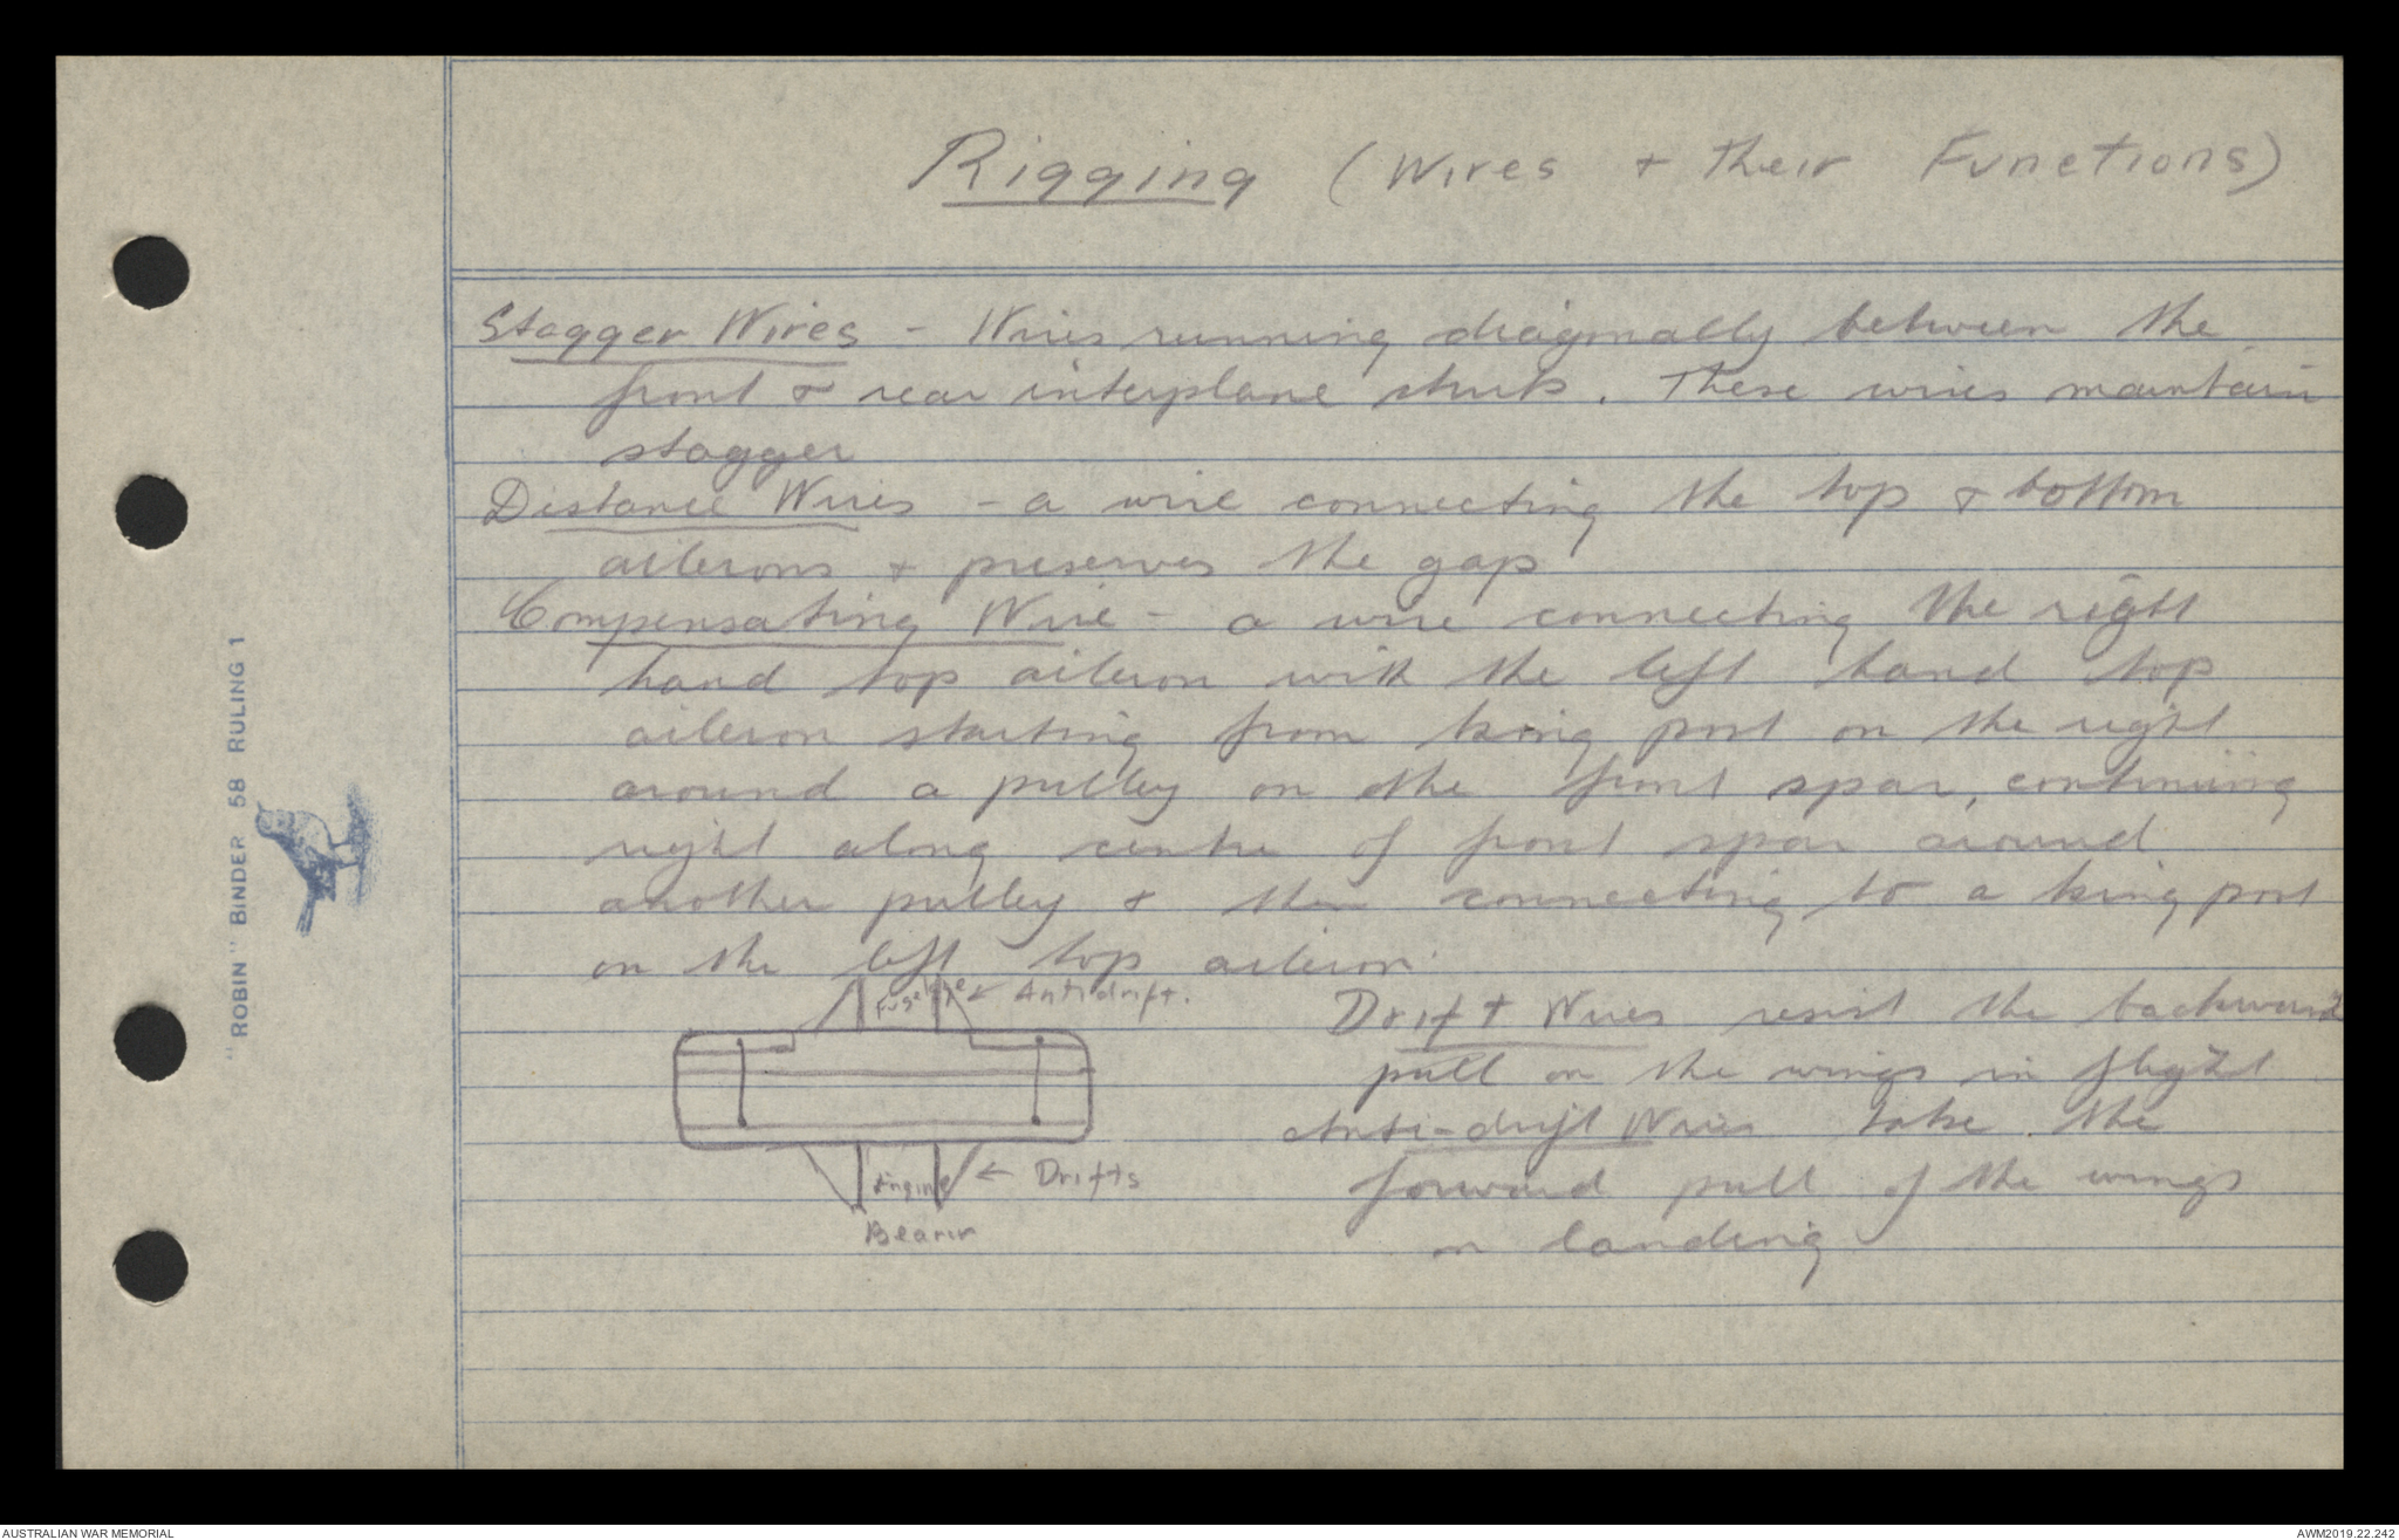 Rigging (Wires + Their Functions)
Stagger Wires - Wires running diagonally between the
front & rear interplane struts. These wires maintain
stagger
Distance Wires - a wire connecting the top & bottom
ailerons + preserves the gap
Compensating Wire - a wire connecting the right
hand top aileron with the left hand top
aileron starting from king post on the right
around a pulley on the front spar, continuing
right along centre of front spar around
another pulley & then connecting to a king post
on the left top aileron.
Fuselage ← Antidrift.
Drift Wires resist the backward
pull on the wings in flight
Anti-drift Wires take the
forward pull of the wings
in landing
Engine ← Drifts
Bearer
"ROBIN" BINDER 58 RULING 1
AUSTRALIAN WAR MEMORIAL
AWM2019.22.242